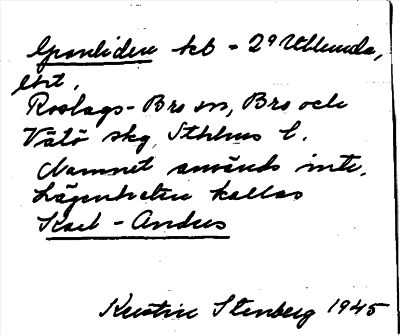 Granliden kb - 2⁹ Utlunda,
lht,
Roslags-Bro sn, Bro och
Vätö skg, Sthlms l.
Namnet används inte.
Lägenheten kallas
Karl-Anders
Kerstin Stenberg 1945